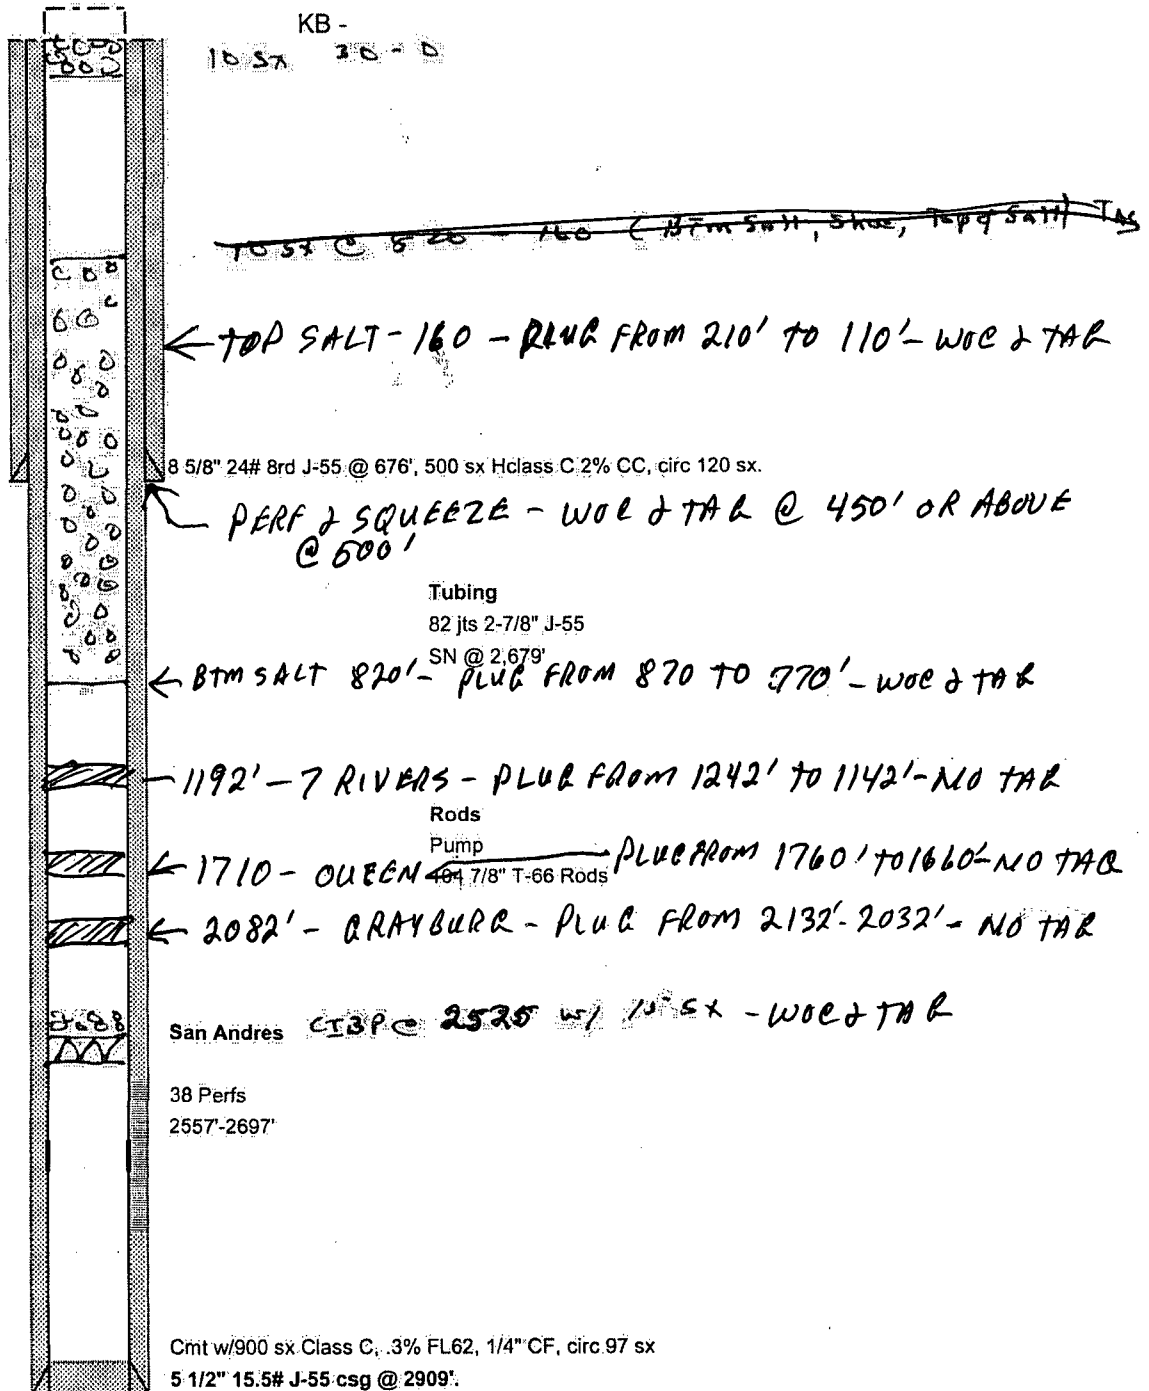 KB -
10 sx 30 - 0
10 sx @ 820 - 160 ( Btm Salt, Shoe, Top of Salt) TAG
TOP SALT - 160 - PLUG FROM 210' TO 110' - WOC & TAG
8 5/8" 24# 8rd J-55 @ 676', 500 sx Hclass C 2% CC, circ 120 sx.
PERF & SQUEEZE - WOC & TAG @ 450' OR ABOVE
@ 500'
Tubing
82 jts 2-7/8" J-55
SN @ 2,679'
BTM SALT 820' - PLUG FROM 870 TO 770' - WOC & TAG
1192' - 7 RIVERS - PLUG FROM 1242' TO 1142' - NO TAG
Rods
Pump
1710 - QUEEN PLUG FROM 1760' TO 1660' - NO TAG
104 7/8" T-66 Rods
2082' - GRAYBURG - PLUG FROM 2132'-2032' - NO TAG
San Andres CIBP @ 2525 w/ sx - WOC & TAG
38 Perfs
2557'-2697'
Cmt w/900 sx Class C, .3% FL62, 1/4" CF, circ 97 sx
5 1/2" 15.5# J-55 csg @ 2909'.